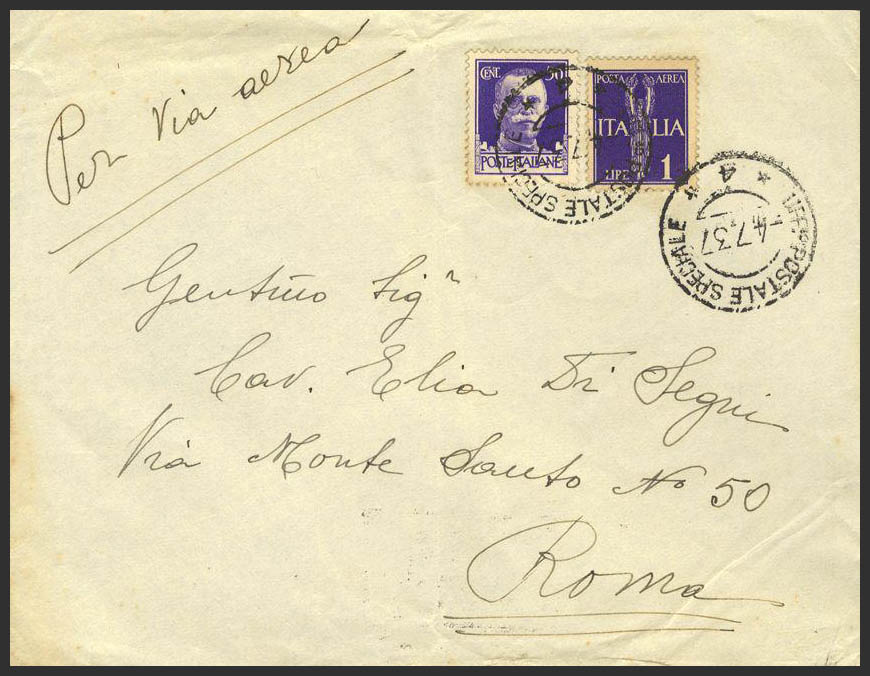 Per Via aerea
CENT. 50
POSTE ITALIANE
POSTA AEREA
ITALIA
LIRE 1
POSTALE SPECIALE
* 4 *
UFF. POSTALE SPECIALE
4.7.37
Gentiṁo Sigʳ
Cav. Elia Di Segni
Via Monte Santo Nº 50
Roma